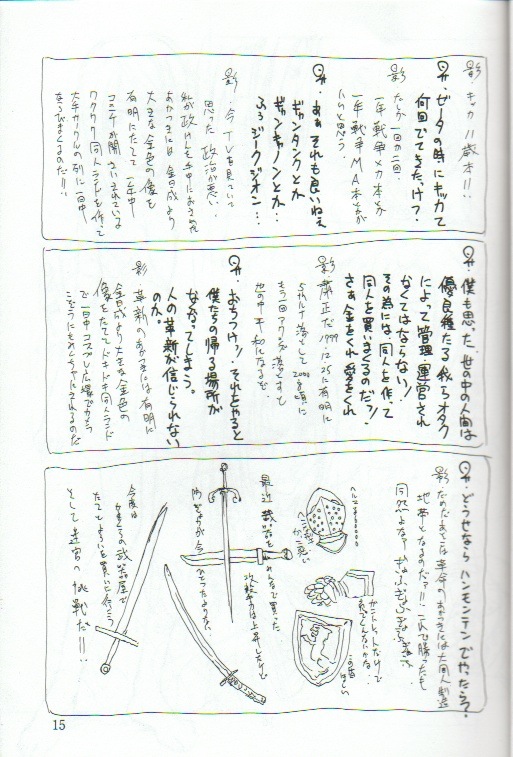 影・キッカ11歳本!!
・ゼータの時にキッカて
何回でてきたっけ?・
影・たしか一回か二回・
一年戦争メカ本とか
一年戦争MA本とか
いいと思う・
・あぁそれも良いねえ
ギャンタンクとか
ギャンキャノンとか…
ふろジークジオン…
影・今TVを見ていて
思った政治が悪い・
私が政けんを手中におさめた
あかつきには金日成より
大きな金色の像を
有明にたてて一年中
コミケが開さいされている
ワクワク同人ランドを作って
大手サークルの列に一日中
ならびまくるのだ!!
・僕も思った、世の中の人間は
優良種たる我らオタク
によって管理・運営され
なくてはならない!
その為には同人を作って
同人を買いまくるのだッ!
さぁ金をくれ愛をくれ
影 粛正だ1999.12.25に有明に
5thルナ落として2000年頃に
もう一回アクシズ落すと
世の中平和になるぞ・
・おちつけ!それをやると
僕たちの帰る場所が
なくなってしまう。
人の革新が信じられない
のか。
影 革新のあかつきには有明に
金日成より大きな金色の
像をたててドキドキ同人ランド
で一日中コスプレした娘でかこう
・どうせならハンモンテンでやったら?
影 だめだあそこは革命のあかつきには大同人製造
地帯となるのだァ!!これで勝ったも
同然よなァ
ヘルム
ガントレットだけで
この盾
ほしい
最近武器をめんなで買った、
攻撃力は上昇したけど
防ぎょ力が今一つたよりない・
今度は
かまくらの武器屋で
たてとよろいを買いに行こう
そして迷宮へ挑戦だ!!
15